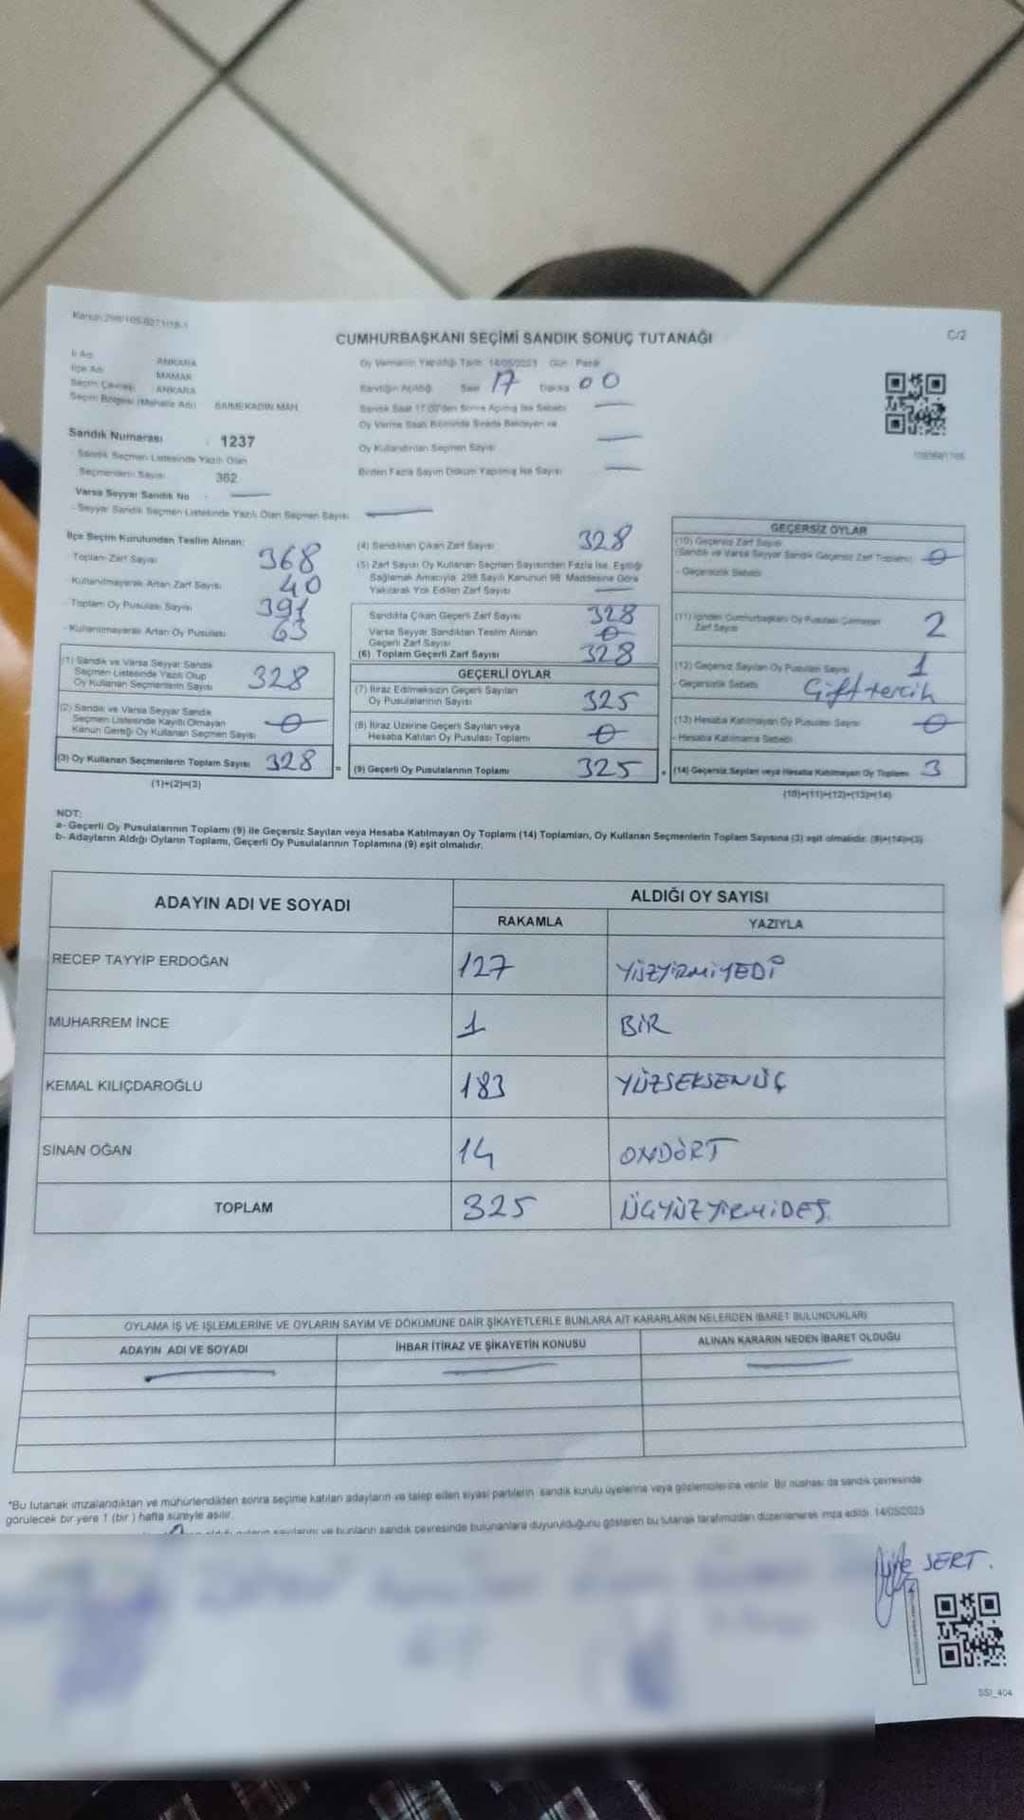 CUMHURBAŞKANI SEÇİMİ SANDIK SONUÇ TUTANAĞI
C/2
İl Adı ANKARA
İlçe Adı MAMAK
Seçim Çevresi ANKARA
Seçim Bölgesi (Mahalle Adı) SAİMEKADIN MAH.
Sandık Numarası : 1237
Sandık Seçmen Listesinde Yazılı Olan
Seçmenlerin Sayısı 382
Varsa Seyyar Sandık No
- Seyyar Sandık Seçmen Listesinde Yazılı Olan Seçmen Sayısı
Oy Vermenin Yapıldığı Tarih 14/05/2023 Gün : Pazar
Sandığın Açıldığı Saat 17 Dakika 00
Sandık Saat 17:00'den Sonra Açılmış İse Sebebi
Oy Verme Saati Bitiminde Sırada Bekleyen ve
Oy Kullandırılan Seçmen Sayısı
Birden Fazla Sayım Döküm Yapılmış İse Sayısı
İlçe Seçim Kurulundan Teslim Alınan:
- Toplam Zarf Sayısı 368
- Kullanılmayarak Artan Zarf Sayısı 40
- Toplam Oy Pusulası Sayısı 391
- Kullanılmayarak Artan Oy Pusulası 63
(1) Sandık ve Varsa Seyyar Sandık
Seçmen Listesinde Yazılı Olup
Oy Kullanan Seçmenlerin Sayısı 328
(2) Sandık ve Varsa Seyyar Sandık
Seçmen Listesinde Kayıtlı Olmayan
Kanun Gereği Oy Kullanan Seçmen Sayısı 0
(3) Oy Kullanan Seçmenlerin Toplam Sayısı 328 =
(1)+(2)=(3)
(4) Sandıktan Çıkan Zarf Sayısı 328
(5) Zarf Sayısı Oy Kullanan Seçmen Sayısından Fazla İse, Eşitliği
Sağlamak Amacıyla, 298 Sayılı Kanunun 98. Maddesine Göre
Yakılarak Yok Edilen Zarf Sayısı
Sandıkta Çıkan Geçerli Zarf Sayısı 328
Varsa Seyyar Sandıktan Teslim Alınan
Geçerli Zarf Sayısı 0
(6) Toplam Geçerli Zarf Sayısı 328
GEÇERLİ OYLAR
(7) İtiraz Edilmeksizin Geçerli Sayılan
Oy Pusulalarının Sayısı 325
(8) İtiraz Üzerine Geçerli Sayılan veya
Hesaba Katılan Oy Pusulası Toplamı 0
(9) Geçerli Oy Pusulalarının Toplamı 325 +
GEÇERSİZ OYLAR
(10) Geçersiz Zarf Sayısı
(Sandık ve Varsa Seyyar Sandık Geçersiz Zarf Toplamı) 0
- Geçersizlik Sebebi
(11) İçinden Cumhurbaşkanı Oy Pusulası Çıkmayan
Zarf Sayısı 2
(12) Geçersiz Sayılan Oy Pusulası Sayısı 1
- Geçersizlik Sebebi Çift tercih
(13) Hesaba Katılmayan Oy Pusulası Sayısı 0
- Hesaba Katılmama Sebebi
(14) Geçersiz Sayılan veya Hesaba Katılmayan Oy Toplamı 3
(10)+(11)+(12)+(13)=(14)
NOT:
a- Geçerli Oy Pusulalarının Toplamı (9) ile Geçersiz Sayılan veya Hesaba Katılmayan Oy Toplamı (14) Toplamları, Oy Kullanan Seçmenlerin Toplam Sayısına (3) eşit olmalıdır. (9)+(14)=(3)
b- Adayların Aldığı Oyların Toplamı, Geçerli Oy Pusulalarının Toplamına (9) eşit olmalıdır.
ADAYIN ADI VE SOYADI
ALDIĞI OY SAYISI
RAKAMLA YAZIYLA
RECEP TAYYİP ERDOĞAN 127 YÜZYİRMİYEDİ
MUHARREM İNCE 1 BİR
KEMAL KILIÇDAROĞLU 183 YÜZSEKSENÜÇ
SİNAN OĞAN 14 ONDÖRT
TOPLAM 325 ÜÇYÜZYİRMİBEŞ
OYLAMA İŞ VE İŞLEMLERİNE VE OYLARIN SAYIM VE DÖKÜMÜNE DAİR ŞİKAYETLERLE BUNLARA AİT KARARLARIN NELERDEN İBARET BULUNDUKLARI
ADAYIN ADI VE SOYADI İHBAR İTİRAZ VE ŞİKAYETİN KONUSU ALINAN KARARIN NEDEN İBARET OLDUĞU
*Bu tutanak imzalandıktan ve mühürlendikten sonra seçime katılan adayların ve talep eden siyasi partilerin sandık kurulu üyelerine veya gözlemcilerine verilir. Bir nüshası da sandık çevresinde
görülecek bir yere 1 (bir) hafta süreyle asılır.
bunların sandık çevresinde bulunanlara duyurulduğunu gösteren bu tutanak tarafımızdan düzenlenerek imza edildi. 14/05/2023
SERT.
SSI_404